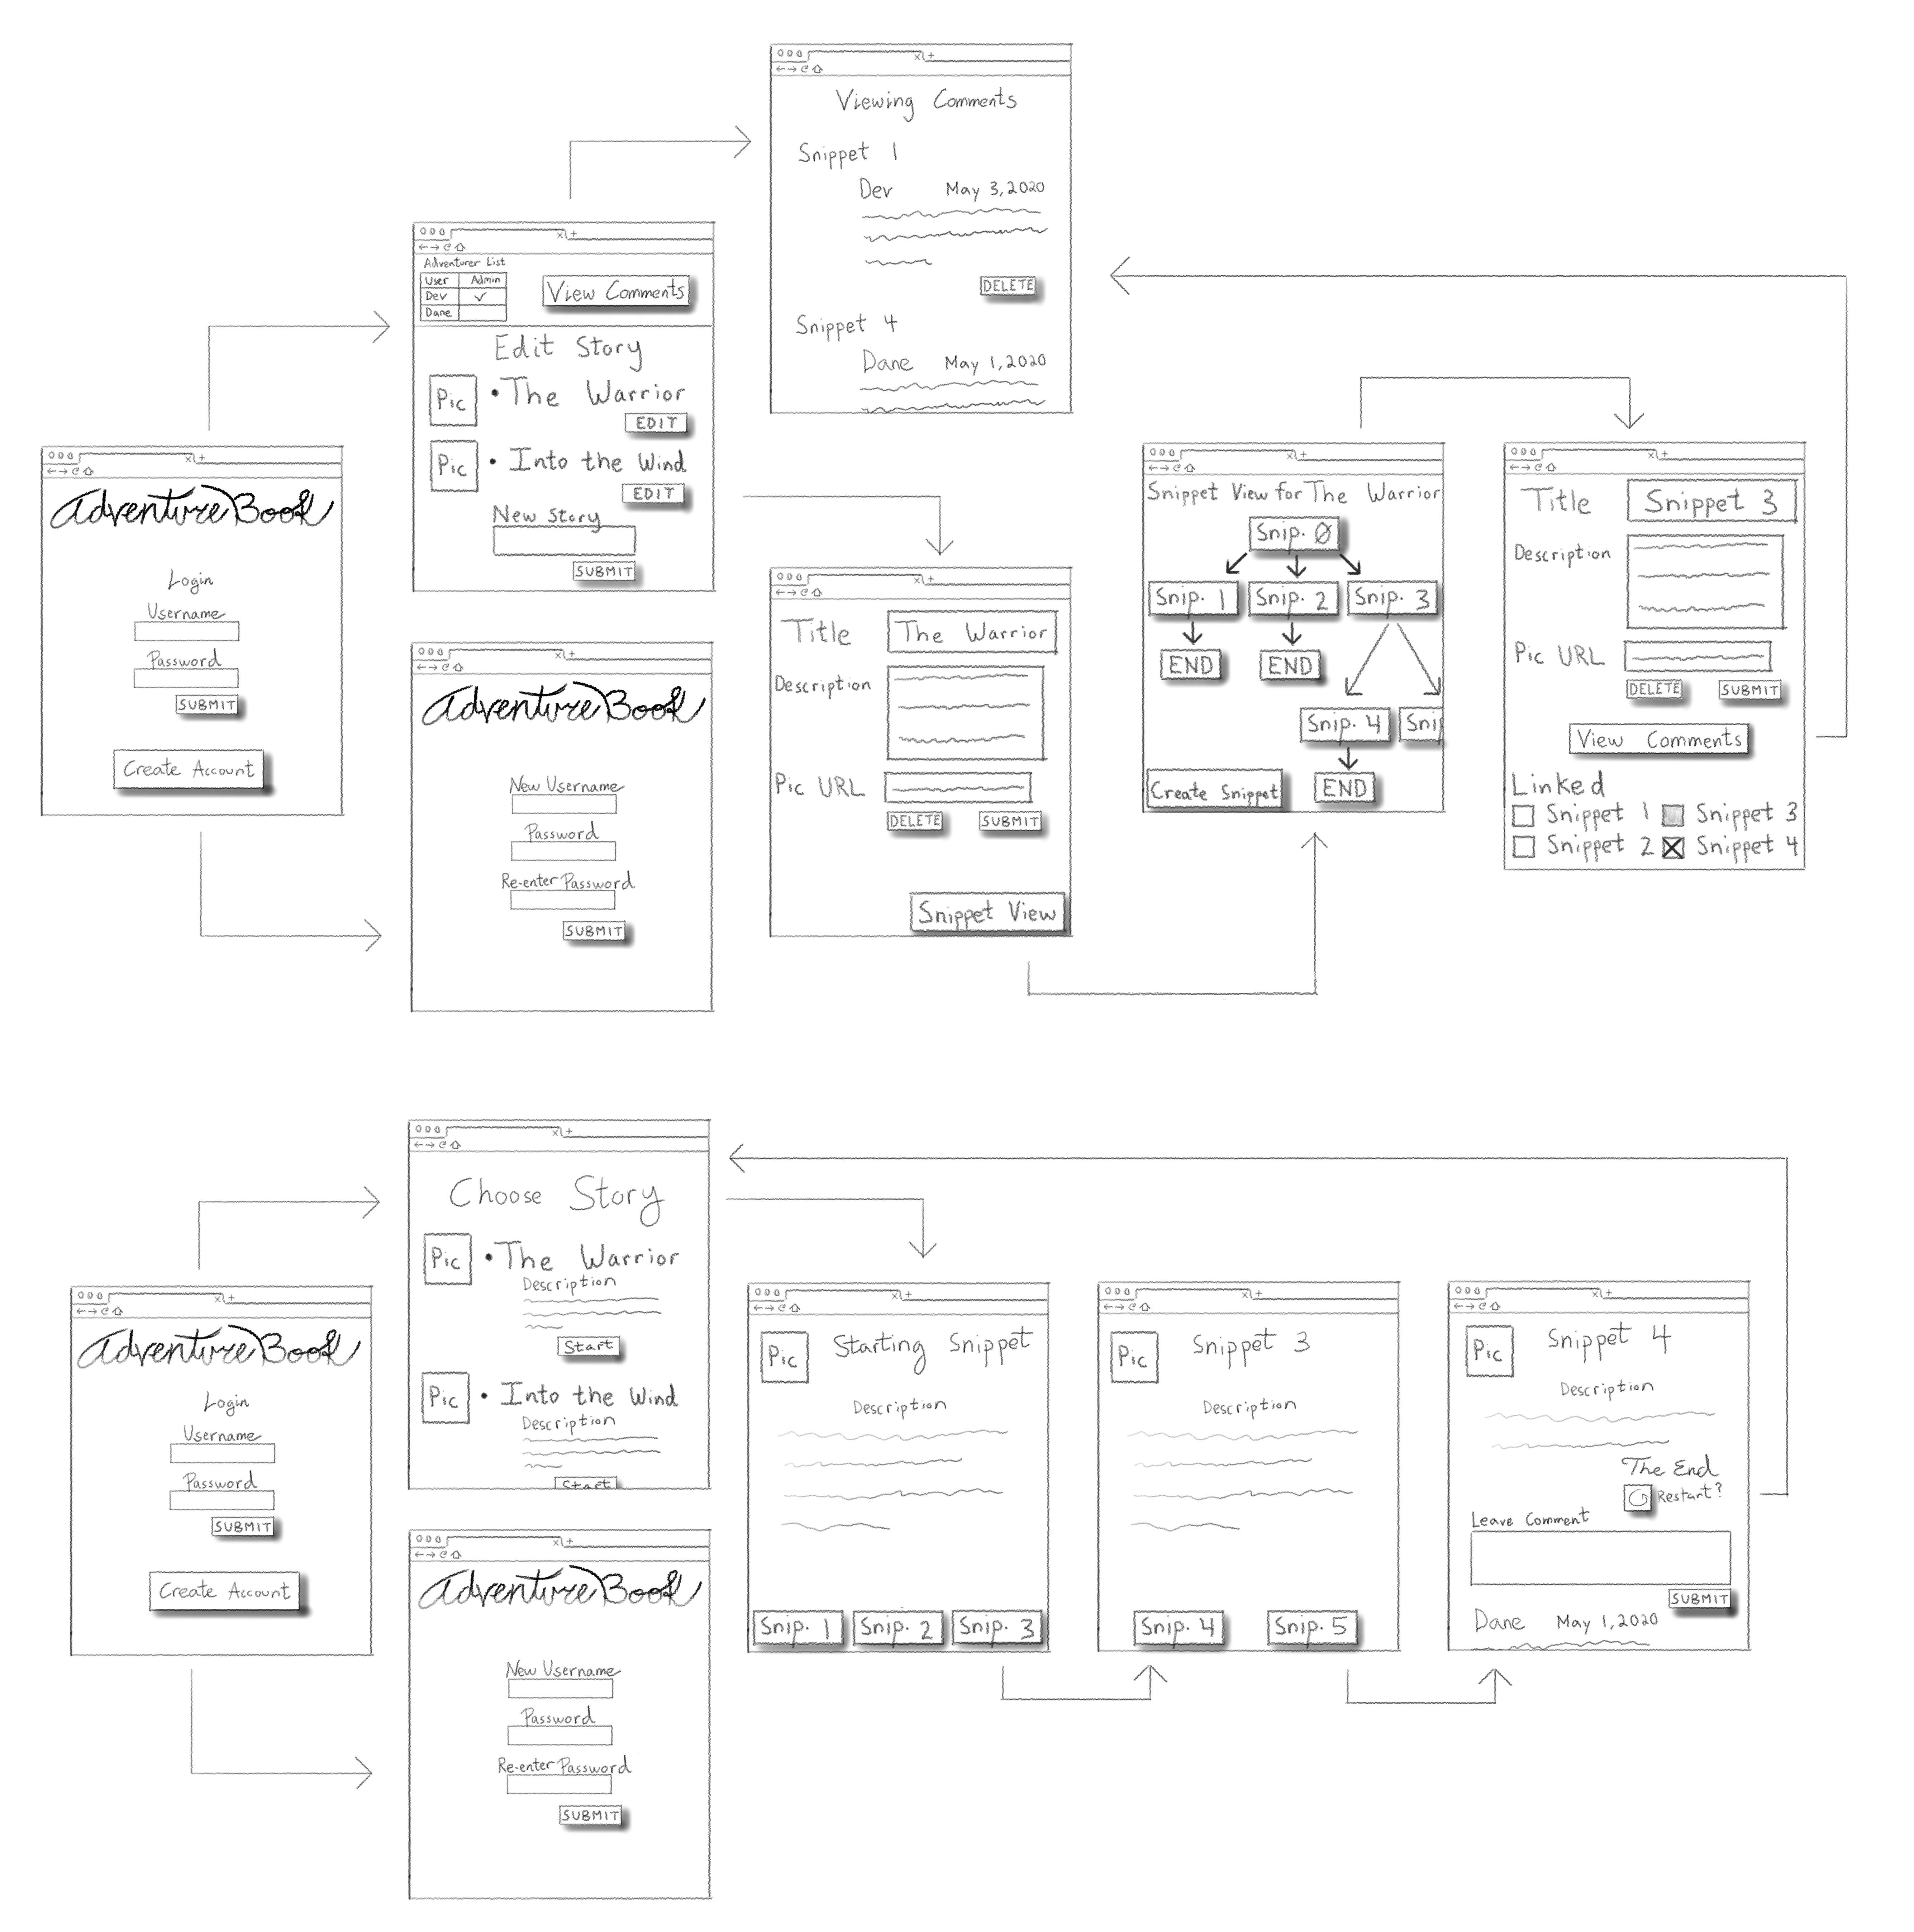 Viewing Comments
Snippet 1
Dev May 3, 2020
DELETE
Snippet 4
Dane May 1, 2020
Adventurer List
User Admin
Dev ✓
Dane
View Comments
Edit Story
Pic • The Warrior
EDIT
Pic • Into the Wind
EDIT
New Story
SUBMIT
Adventure Book
Login
Username
Password
SUBMIT
Create Account
Adventure Book
New Username
Password
Re-enter Password
SUBMIT
Title The Warrior
Description
Pic URL
DELETE SUBMIT
Snippet View
Snippet View for The Warrior
Snip. 0
Snip. 1 Snip. 2 Snip. 3
END END
Snip. 4 Snip
END
Create Snippet
Title Snippet 3
Description
Pic URL
DELETE SUBMIT
View Comments
Linked
Snippet 1 Snippet 3
Snippet 2 Snippet 4
Adventure Book
Login
Username
Password
SUBMIT
Create Account
Choose Story
Pic • The Warrior
Description
Start
Pic • Into the Wind
Description
Start
Adventure Book
New Username
Password
Re-enter Password
SUBMIT
Pic Starting Snippet
Description
Snip. 1 Snip. 2 Snip. 3
Pic Snippet 3
Description
Snip. 4 Snip. 5
Pic Snippet 4
Description
The End
Restart?
Leave Comment
SUBMIT
Dane May 1, 2020